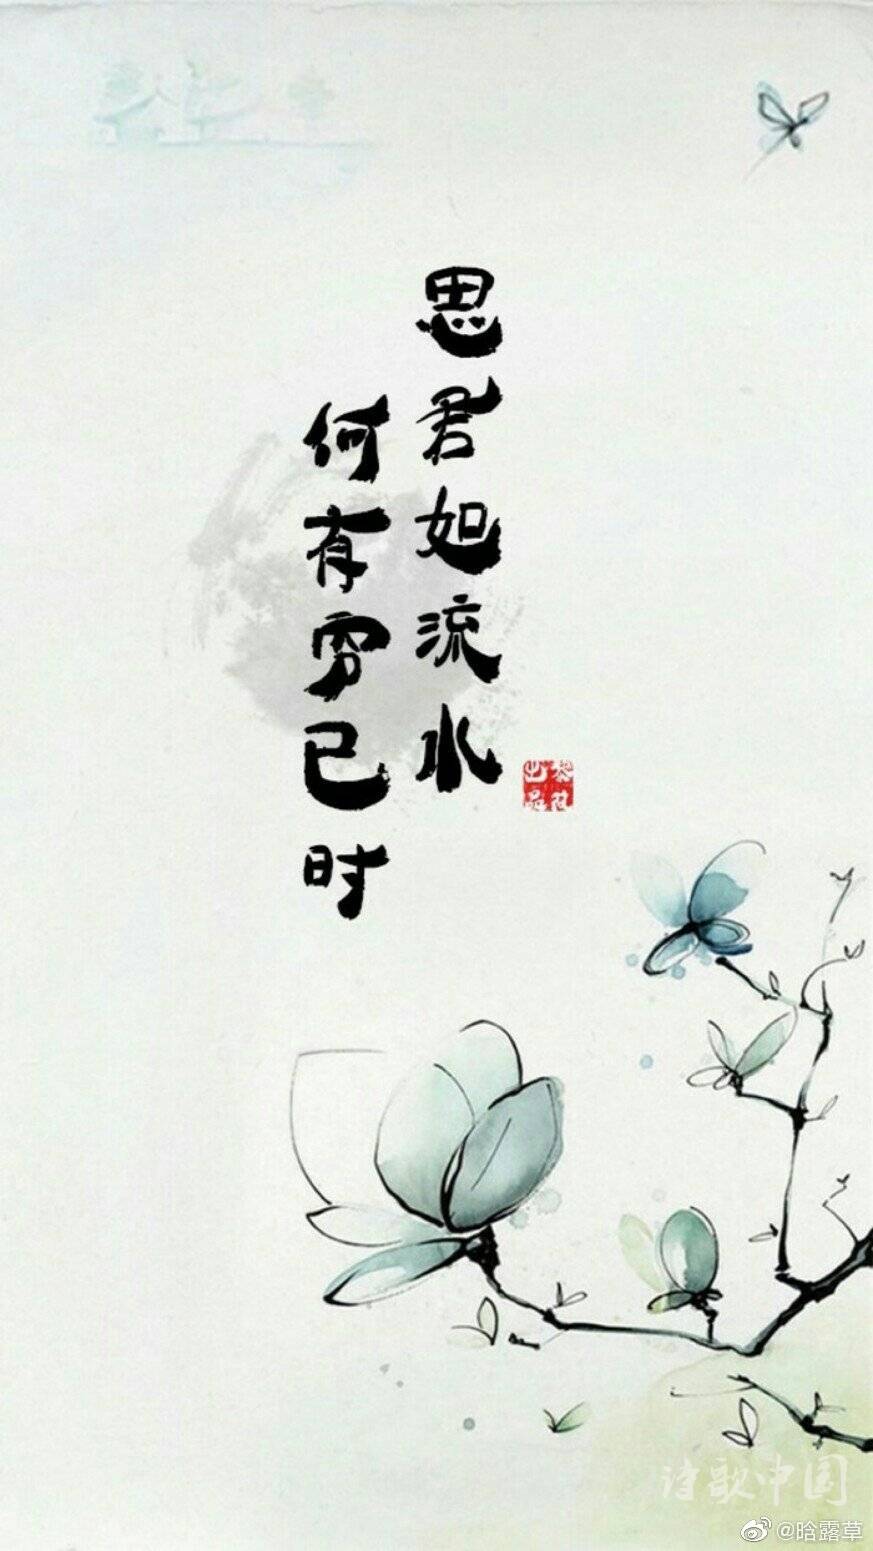 思君如流水
何有穷已时
诗歌中国
@晗露草